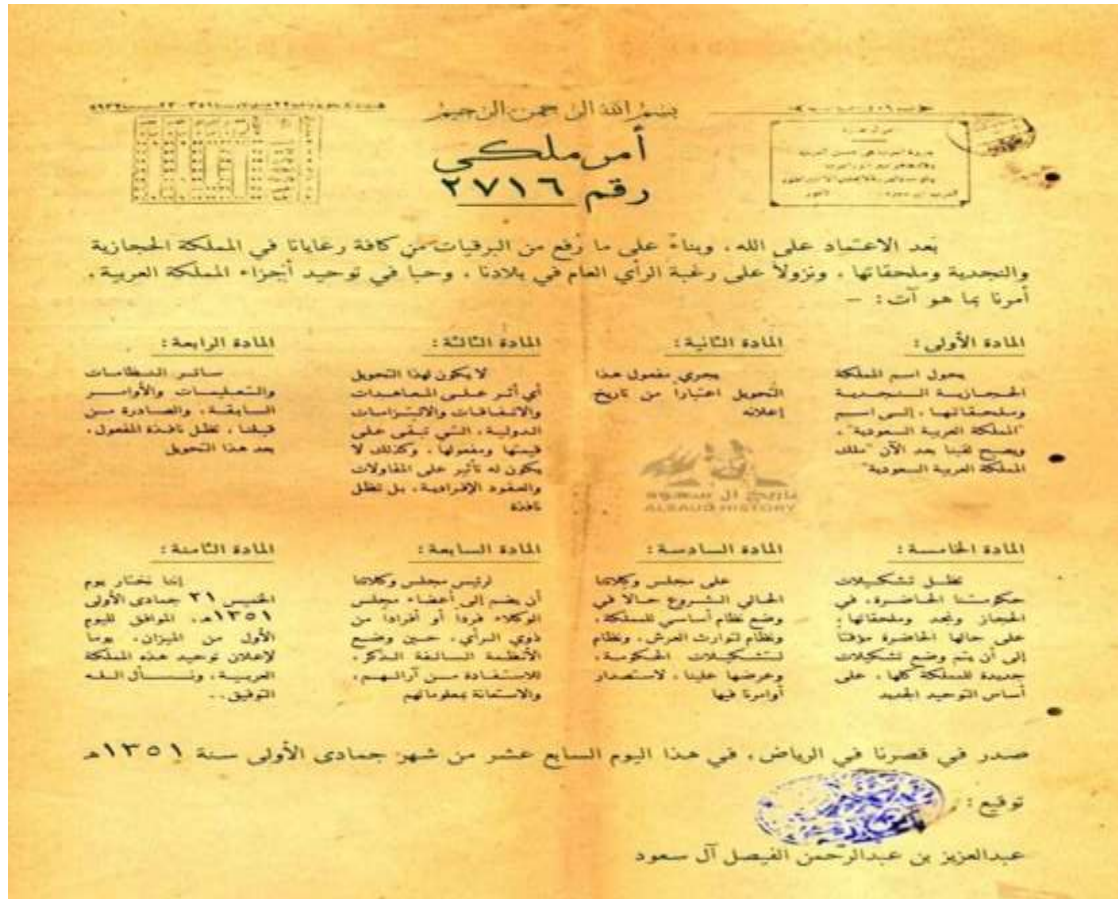 بسم الله الرحمن الرحيم
أمر ملكي
رقم ٢٧١٦
بعد الاعتماد على الله، وبناءً على ما رُفع من البرقيات من كافة رعايانا في المملكة الحجازية
والنجدية وملحقاتها، ونزولاً على رغبة الرأي العام في بلادنا، وحبا في توحيد أجزاء المملكة العربية،
أمرنا بما هو آت : –
المادة الأولى :
يحول اسم المملكة
الحجازية النجدية
وملحقاتها، إلى اسم
"المملكة العربية السعودية"،
ويصبح لقبنا بعد الآن "ملك
المملكة العربية السعودية"
المادة الثانية :
يجري مفعول هذا
التحويل اعتبارا من تاريخ
إعلانه
المادة الثالثة :
لا يكون لهذا التحويل
أي أثر على المعاهدات
والاتفاقات والالتزامات
الدولية، التي تبقى على
قيمتها ومفعولها، وكذلك لا
يكون له تأثير على المقاولات
والعقود الإفرادية، بل تظل
نافذة
المادة الرابعة :
سائر النظامات
والتعليمات والأوامر
السابقة، والصادرة من
قبلنا، تظل نافذة المفعول،
بعد هذا التحويل
تاريخ آل سعود
ALSAUD HISTORY
المادة الخامسة :
تظل تشكيلات
حكومتنا الحاضرة، في
الحجاز ونجد وملحقاتها،
على حالها الحاضرة مؤقتا
إلى أن يتم وضع تشكيلات
جديدة للمملكة كلها، على
أساس التوحيد الجديد
المادة السادسة :
على مجلس وكلائنا
الحالي الشروع حالا في
وضع نظام أساسي للمملكة،
ونظام لتوارث العرش، ونظام
لتشكيلات الحكومة،
وعرضها علينا، لاستصدار
أوامرنا فيها
المادة السابعة :
لرئيس مجلس وكلائنا
أن يضم إلى أعضاء مجلس
الوكلاء فردا أو أفرادا من
ذوي الرأي، حين وضع
الأنظمة السالفة الذكر،
للاستفادة من آرائهم،
والاستعانة بمعلوماتهم
المادة الثامنة :
إننا نختار يوم
الخميس ٢١ جمادى الأولى
١٣٥١هـ، الموافق لليوم
الأول من الميزان، يوما
لإعلان توحيد هذه المملكة
العربية، ونسأل الله
التوفيق..
صدر في قصرنا في الرياض، في هذا اليوم السابع عشر من شهر جمادى الأولى سنة ١٣٥١هـ
توقيع :
عبدالعزيز بن عبدالرحمن الفيصل آل سعود